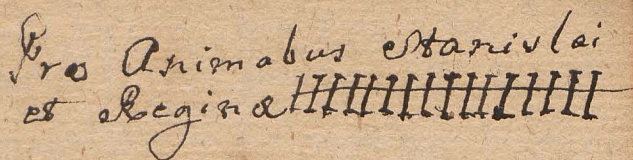 Pro Animabus Stanislai
et Reginæ